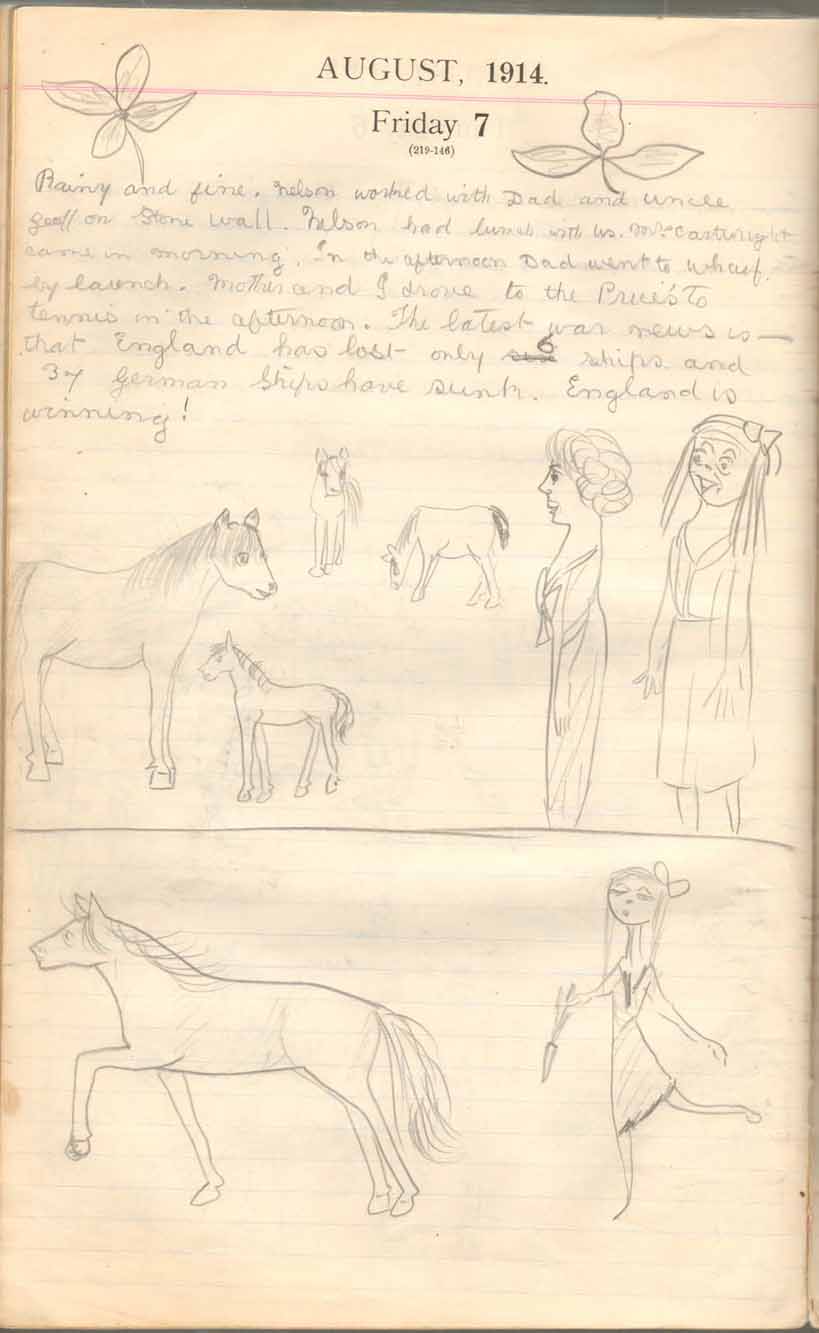 AUGUST, 1914.
Friday 7
(219-146)
Rainy and fine. Nelson worked with Dad and uncle
Geoff on Stone wall. Nelson had lunch with us. Mrs Cartwright
came in morning. In the afternoon Dad went to wharf.
by launch. Mother and I drove to the Price's To
tennis in the afternoon. The latest war news is —
that England has lost only 6 ships and
37 German Ships have sunk. England is
winning!